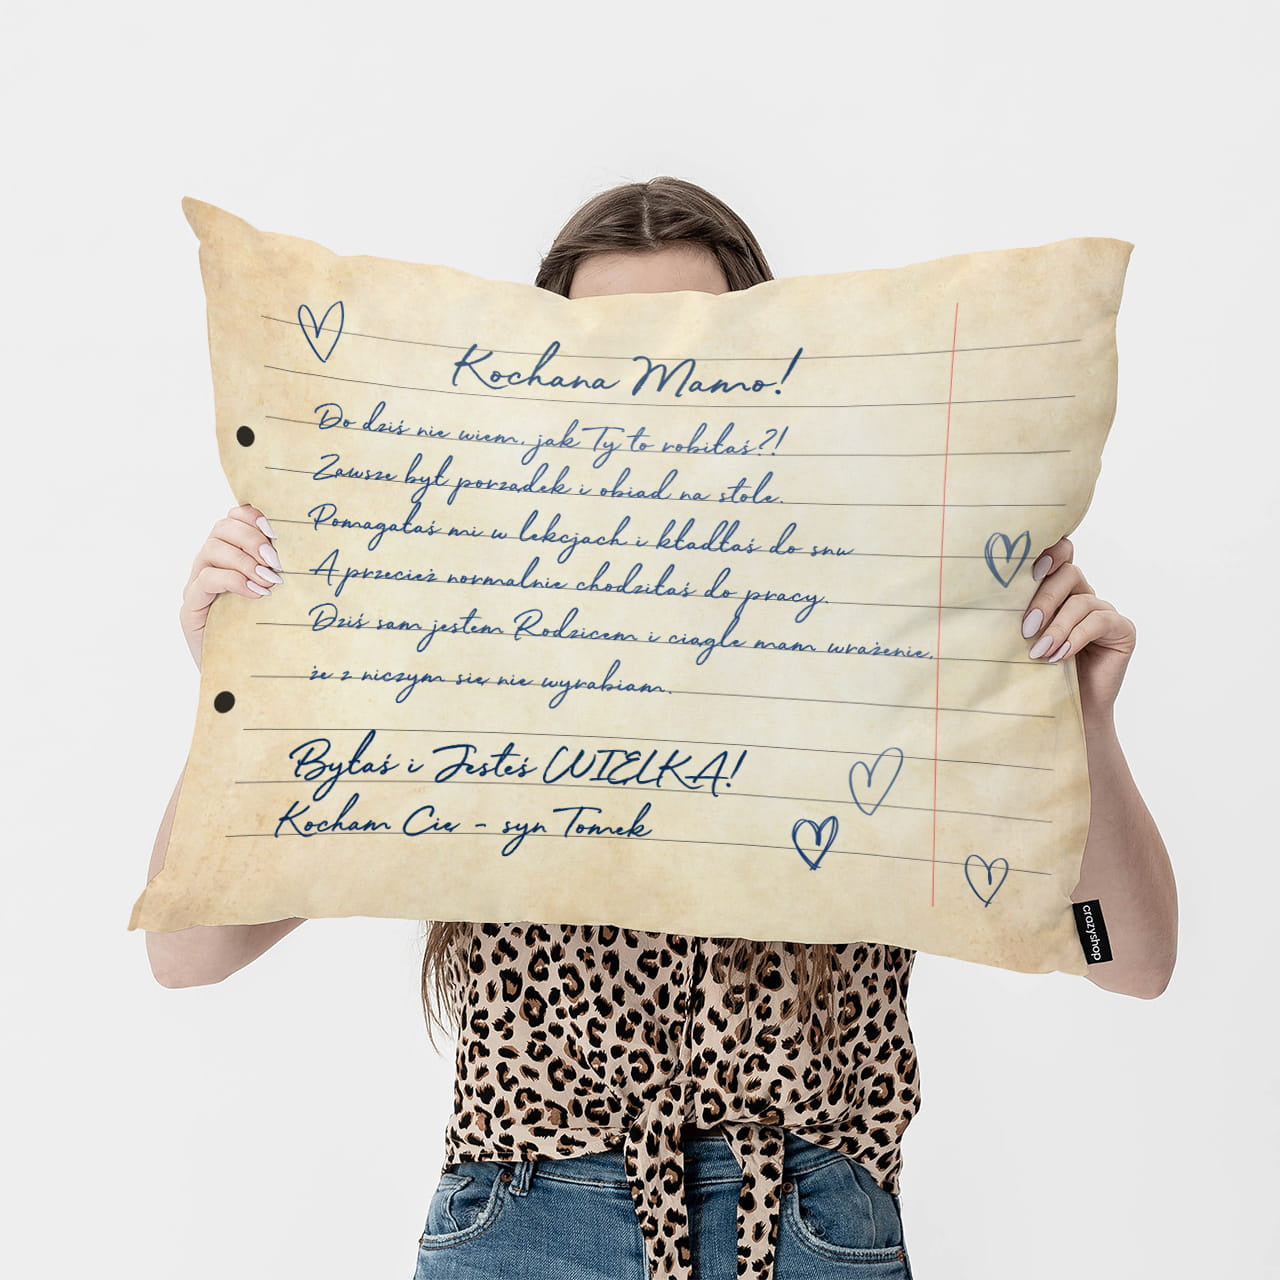 Kochana Mamo!
Do dziś nie wiem, jak Ty to robiłaś?!
Zawsze był porządek i obiad na stole.
Pomagałaś mi w lekcjach i kładłaś do snu
A przecież normalnie chodziłaś do pracy.
Dziś sam jestem Rodzicem i ciągle mam wrażenie,
że z niczym się nie wyrabiam.
Byłaś i Jesteś WIELKA!
Kocham Cię - syn Tomek
crazyshop